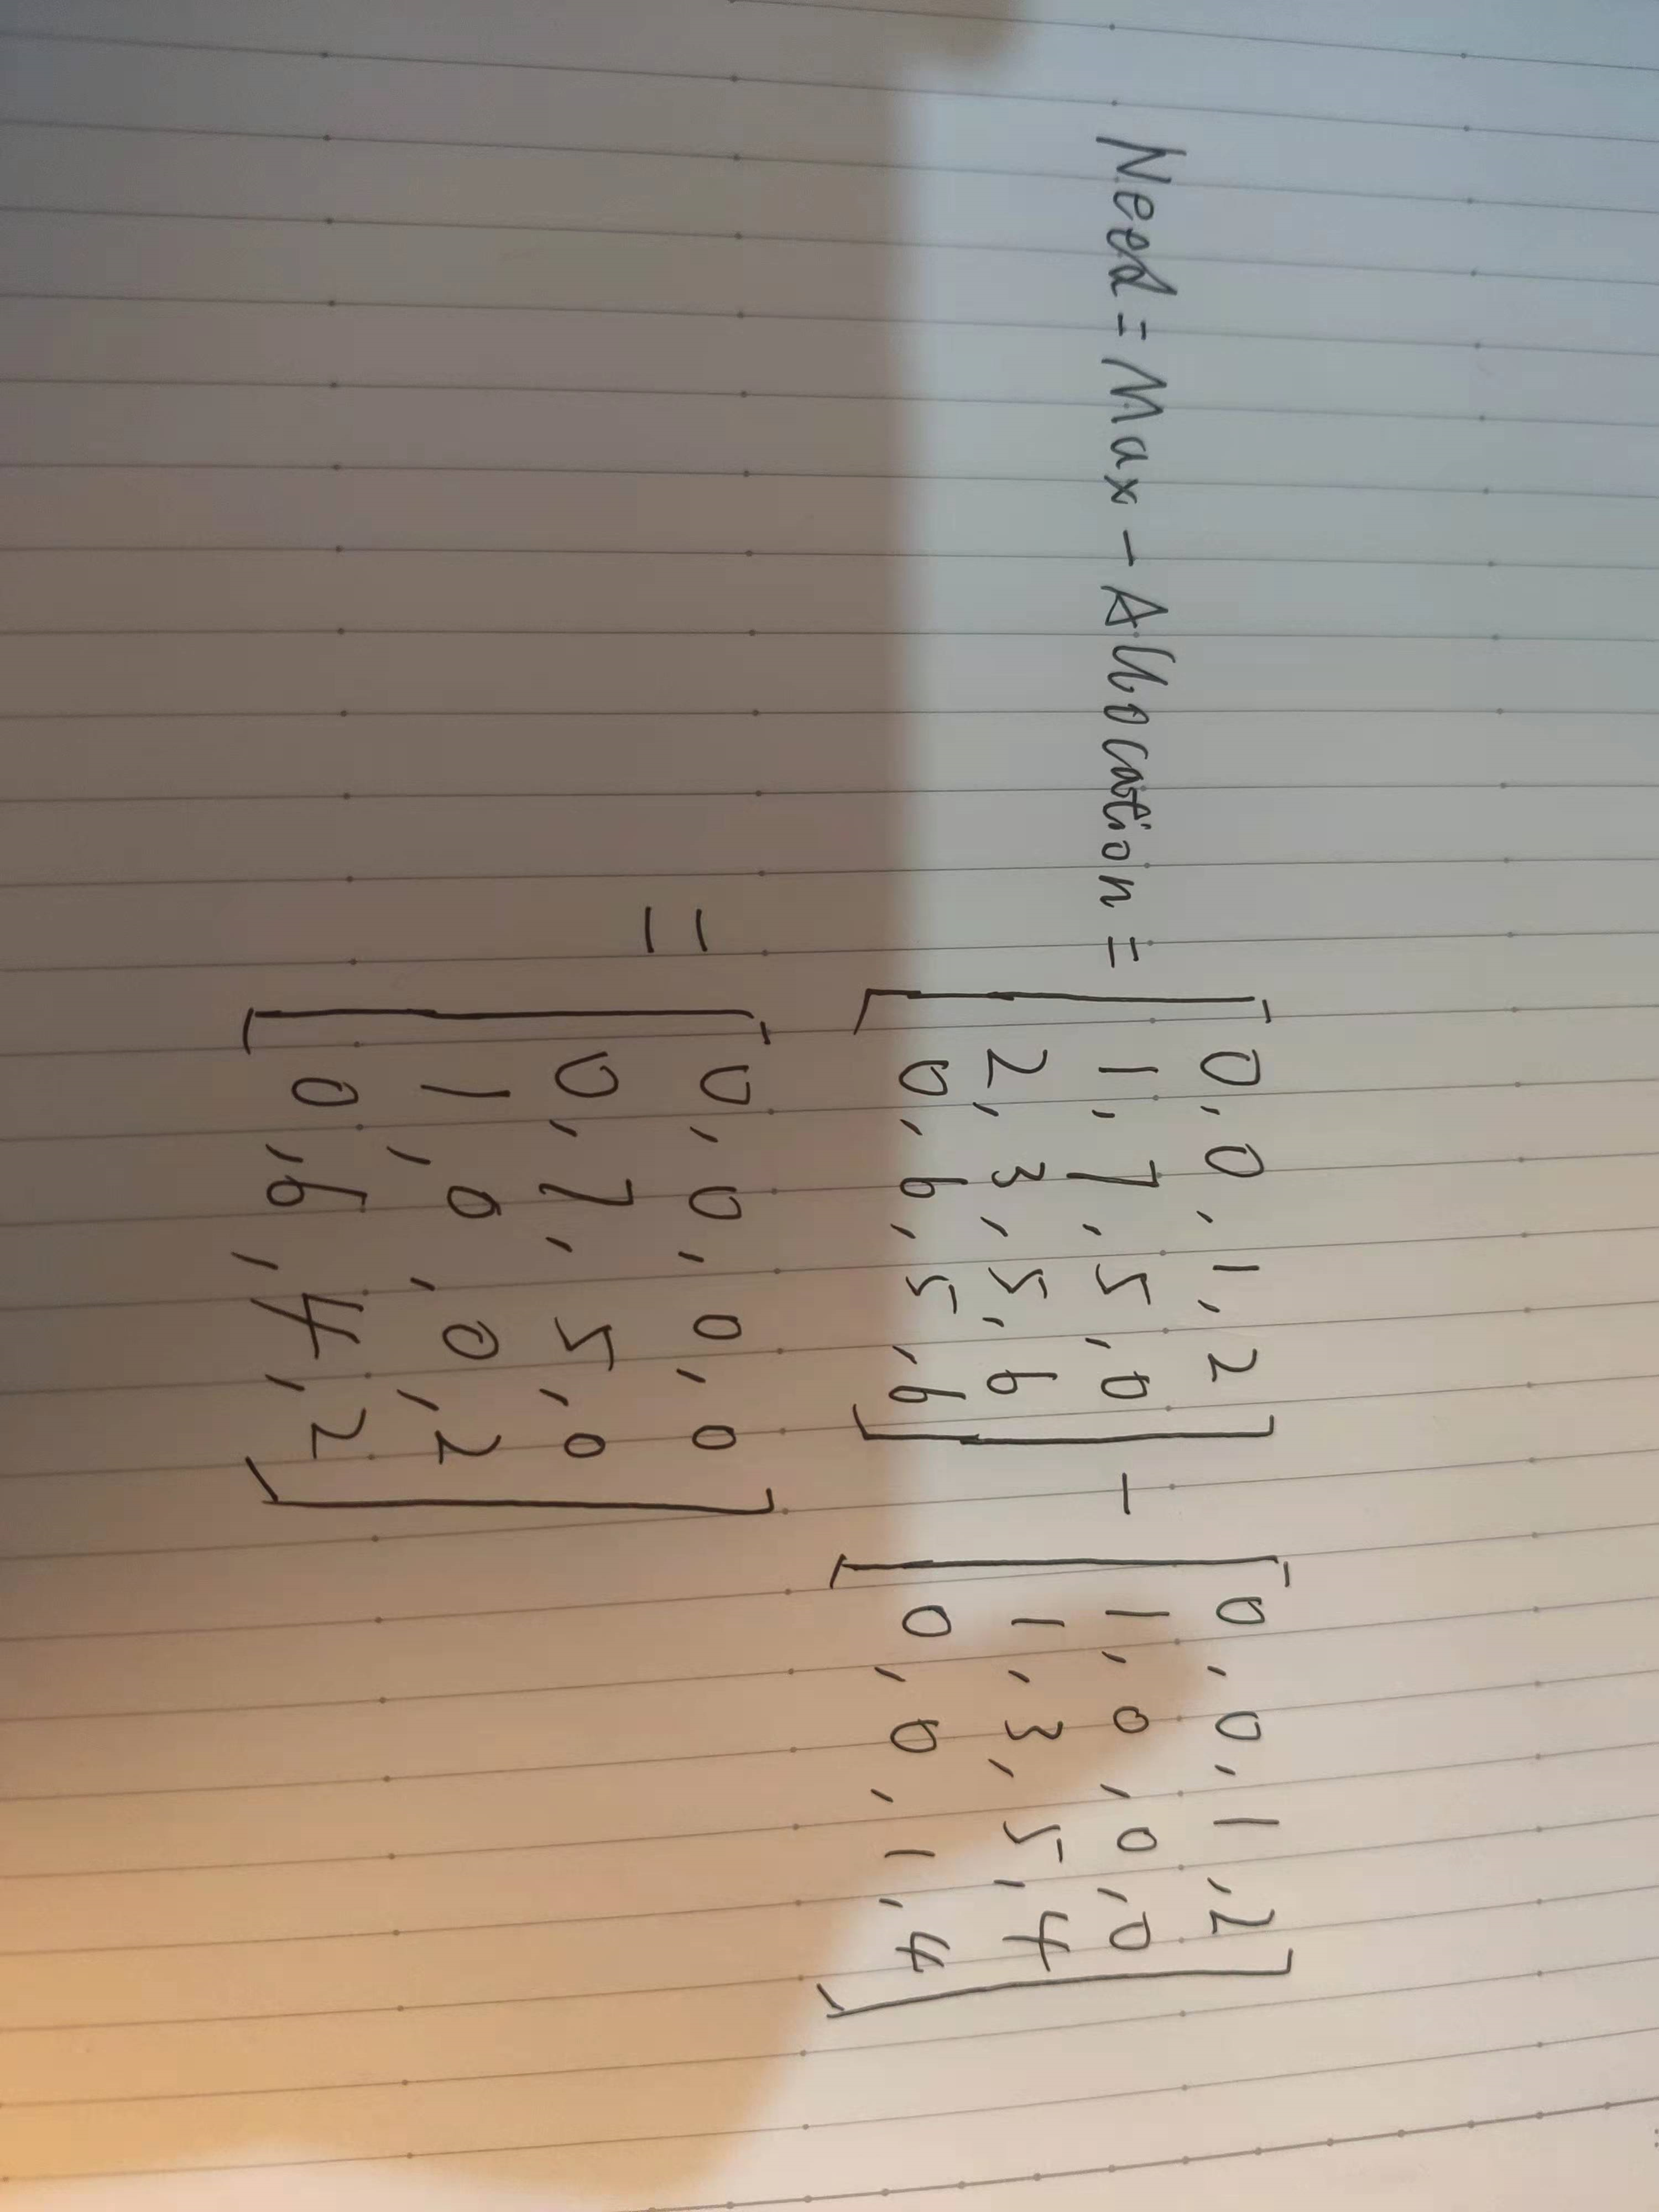 Need = Max - Allocation = [0,0,1,2 - [0,0,1,2
1,7,5,0 1,0,0,0
2,3,5,6 1,3,5,4
0,6,5,6] 0,0,1,4]
= [0,0,0,0
0,7,5,0
1,0,0,2
0,6,4,2]